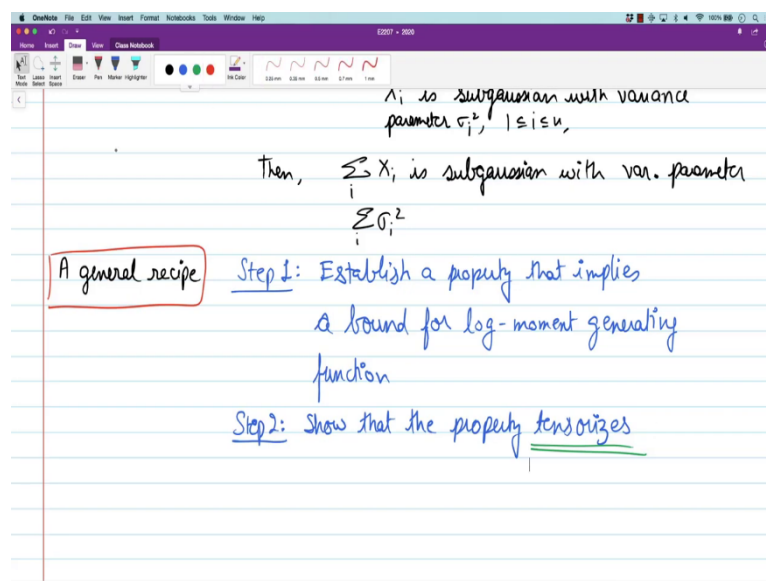 OneNote File Edit View Insert Format Notebooks Tools Window Help 100%
E2207 - 2020
Home Insert Draw View Class Notebook
Text Mode Lasso Select Insert Space Eraser Pen Marker Highlighter Ink Color 0.25 mm 0.35 mm 0.5 mm 0.7 mm 1 mm
Xi is subgaussian with variance
parameter σi², 1 ≤ i ≤ n,
Then, Σi Xi is subgaussian with var. parameter
Σi σi²
A general recipe Step 1: Establish a property that implies
a bound for log-moment generating
function
Step 2: Show that the property tensorizes